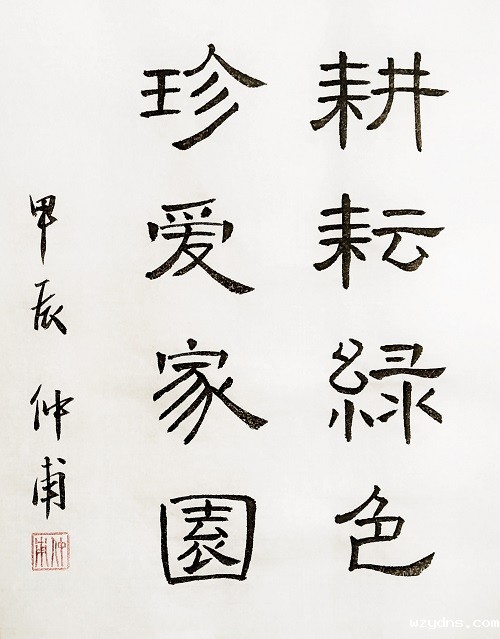 耕耘緑色
珍爱家園
甲辰 仲甫
仲甫
wzydns.com